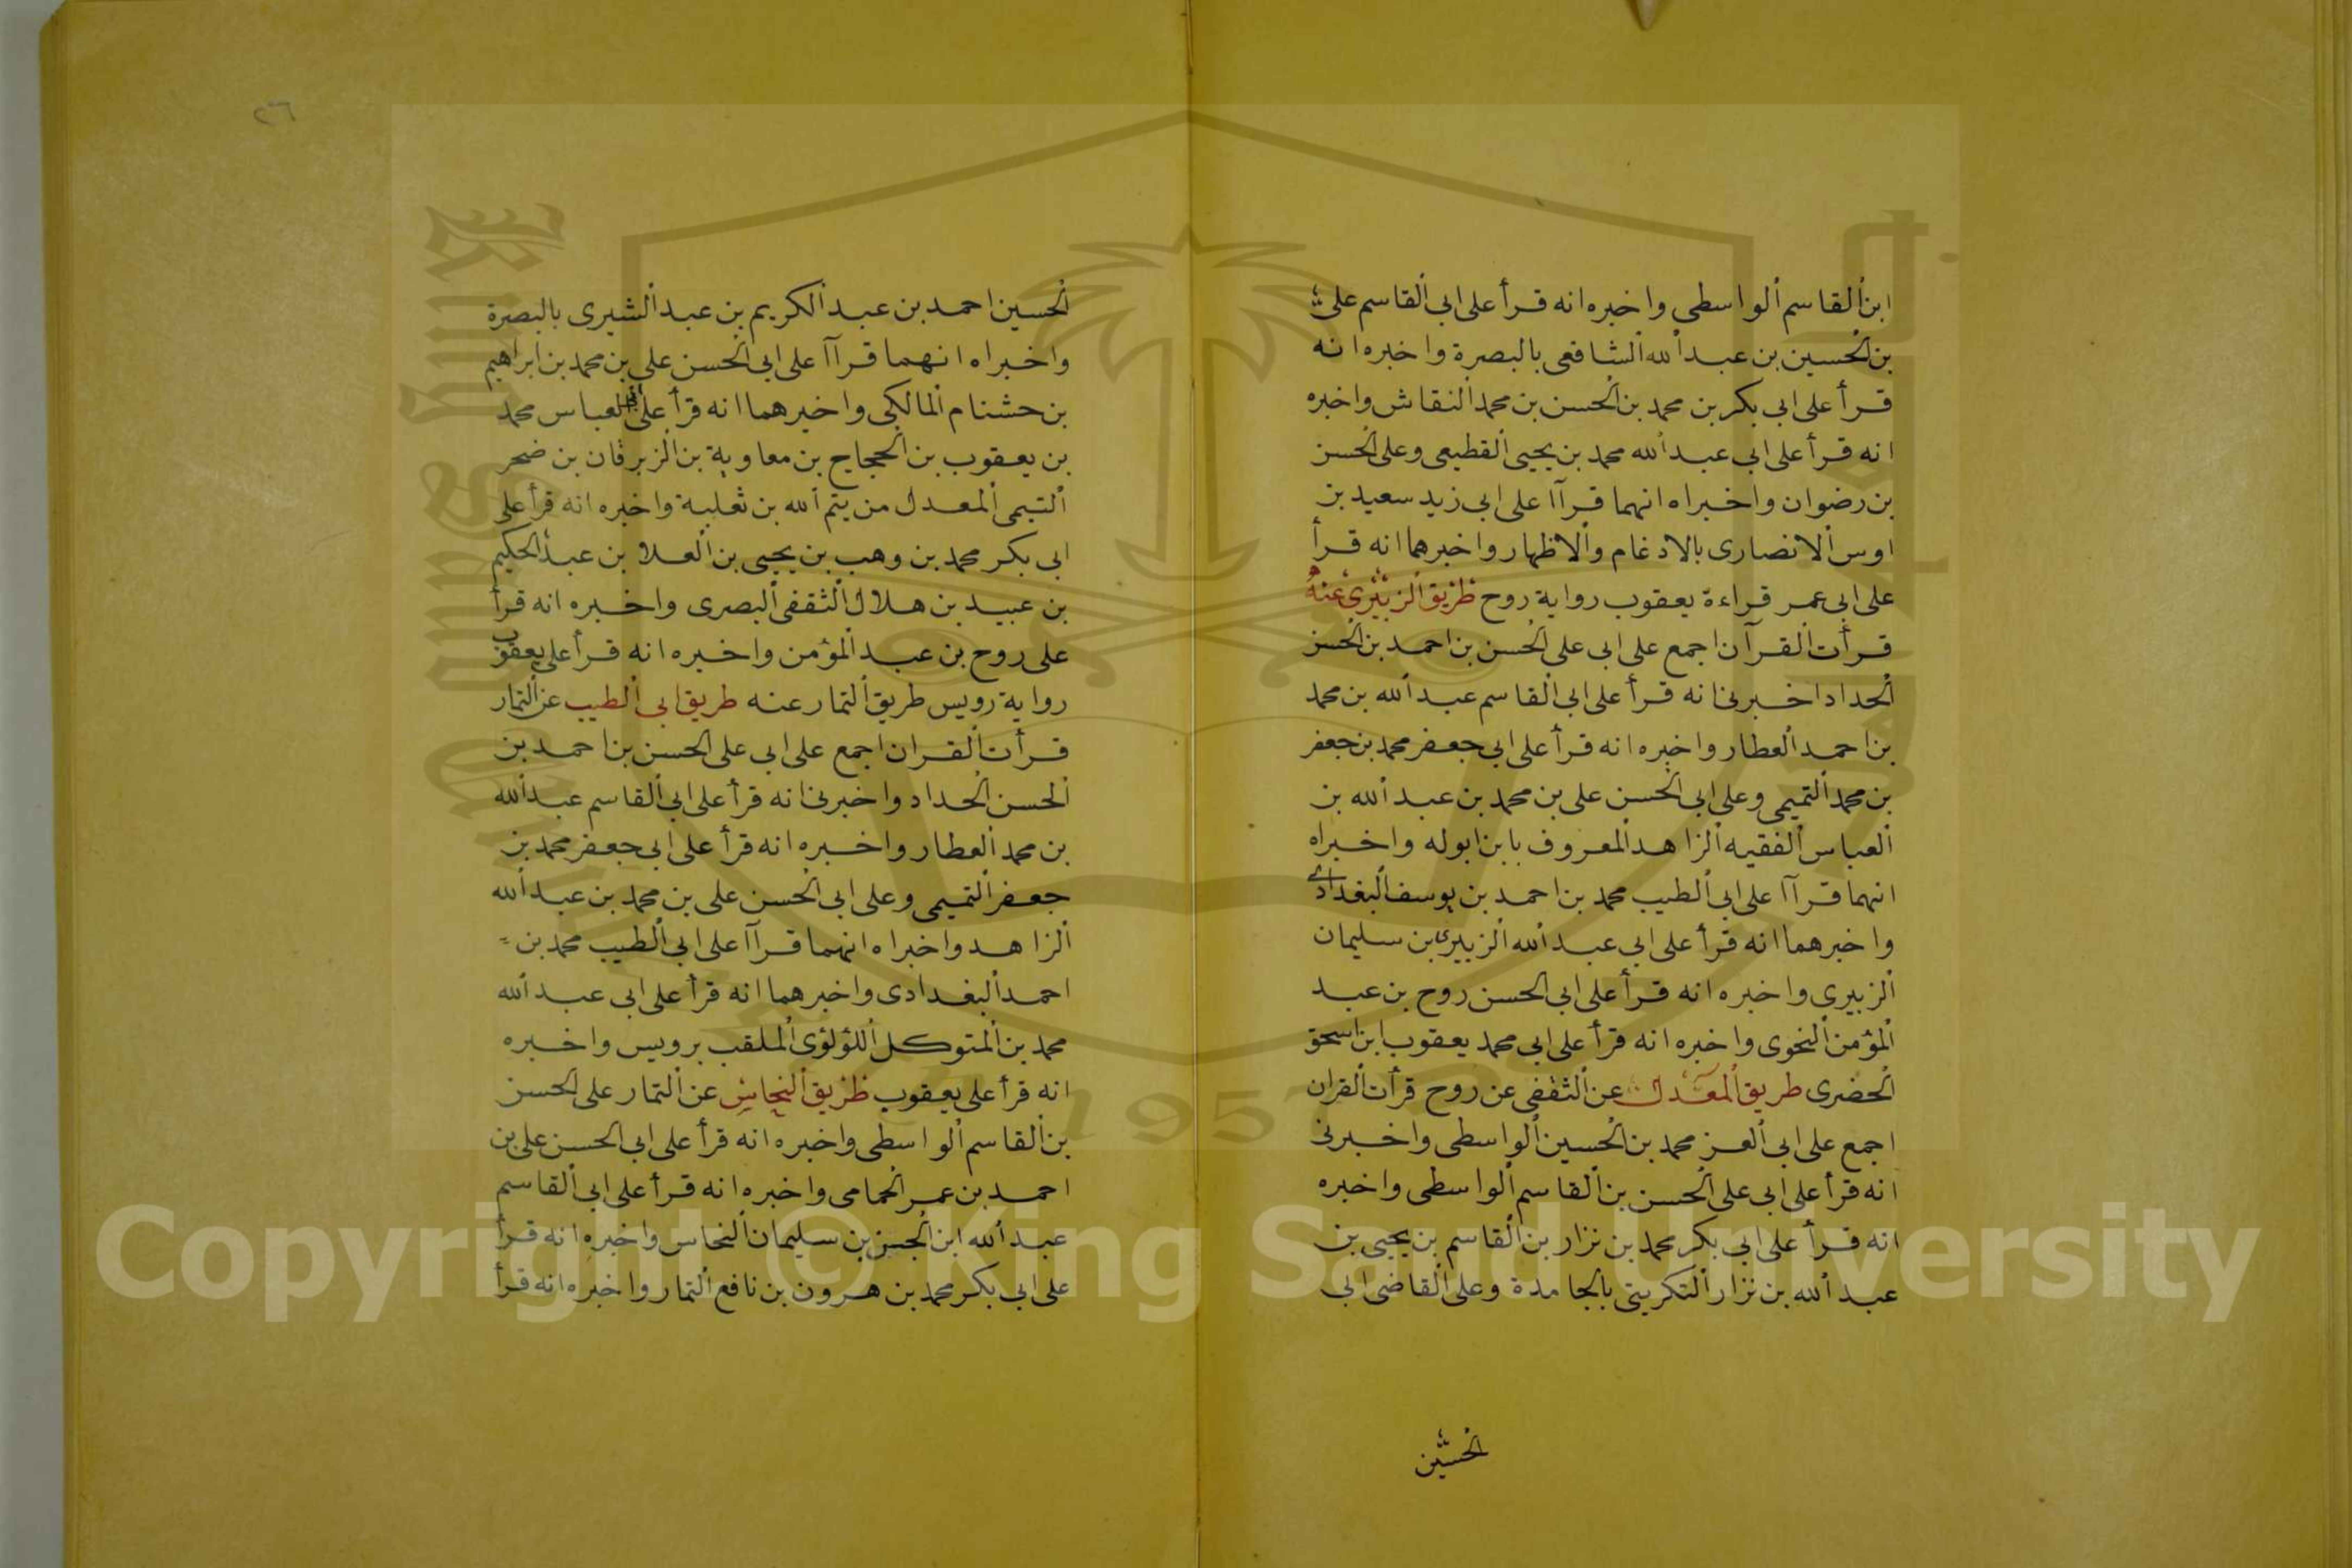 ابن القاسم الواسطى واخبره انه قرأ على ابى القاسم على
بن الحسين بن عبد الله الشافعى بالبصرة واخبره انه
قرأ على ابى بكر بن محمد بن الحسن بن محمد النقاش واخبره
انه قرأ على ابى عبد الله محمد بن يحيى القطيعى وعلى الحسن
بن رضوان واخبراه انهما قرآا على ابى زيد سعيد بن
اوس الانصارى بالادغام والاظهار واخبرهما انه قرأ
على ابى عمر قراءة يعقوب رواية روح طريق الزبيرى عنه
قرأت القرآن اجمع على ابى على الحسن بن احمد بن الحسن
الحداد اخبرنى انه قرأ على ابى القاسم عبد الله بن محمد
بن احمد العطار واخبره انه قرأ على ابى جعفر محمد بن جعفر
بن محمد التميمى وعلى ابى الحسن على بن محمد بن عبد الله بن
العباس الفقيه الزاهد المعروف بابن ابوله واخبراه
انهما قرآا على ابى الطيب محمد بن احمد بن يوسف البغدادى
واخبرهما انه قرأ على ابى عبد الله الزبيرى بن سليمان
الزبيرى واخبره انه قرأ على ابى الحسن روح بن عبد
المؤمن النحوى واخبره انه قرأ على ابى محمد يعقوب ابن اسحق
الحضرى طريق المعدل عن الثقفى عن روح قرأت القران
اجمع على ابى العز محمد بن الحسين الواسطى واخبرنى
انه قرأ على ابى على الحسن بن القاسم الواسطى واخبره
انه قرأ على ابى بكر محمد بن نزار بن القاسم بن يحيى بن
عبد الله بن نزار التكريتى بالجامدة وعلى القاضى ابى
الحسين
٢٦
الحسين احمد بن عبد الكريم بن عبد الشيرى بالبصرة
واخبراه انهما قرآا على ابى الحسن على بن محمد بن ابراهيم
بن حشنام المالكى واخبرهما انه قرأ على ابى العباس محمد
بن يعقوب بن الحجاج بن معاوية بن الزبرقان بن صخر
التيمى المعدل من يتم الله بن ثعلبة واخبره انه قرأ على
ابى بكر محمد بن وهب بن يحيى بن العلا بن عبد الحكيم
بن عبيد بن هلال الثقفى البصرى واخبره انه قرأ
على روح بن عبد المؤمن واخبره انه قرأ على يعقوب
رواية رويس طريق التمار عنه طريق ابى الطيب عن التمار
قرأت القران اجمع على ابى على الحسن بن احمد بن
الحسن الحداد واخبرنى انه قرأ على ابى القاسم عبد الله
بن محمد العطار واخبره انه قرأ على ابى جعفر محمد بن
جعفر التميمى وعلى ابى الحسن على بن محمد بن عبد الله
الزاهد واخبراه انهما قرآا على ابى الطيب محمد بن
احمد البغدادى واخبرهما انه قرأ على ابى عبد الله
محمد بن المتوكل اللؤلؤى الملقب برويس واخبره
انه قرأ على يعقوب طريق النحاس عن التمار على الحسن
بن القاسم الواسطى واخبره انه قرأ على ابى الحسن على بن
احمد بن عمر الحمامى واخبره انه قرأ على ابى القاسم
عبد الله ابن الحسن بن سليمان النحاس واخبره انه قرأ
على ابى بكر محمد بن هرون بن نافع التمار واخبره انه قرأ
Copyright © King Saud University
1957